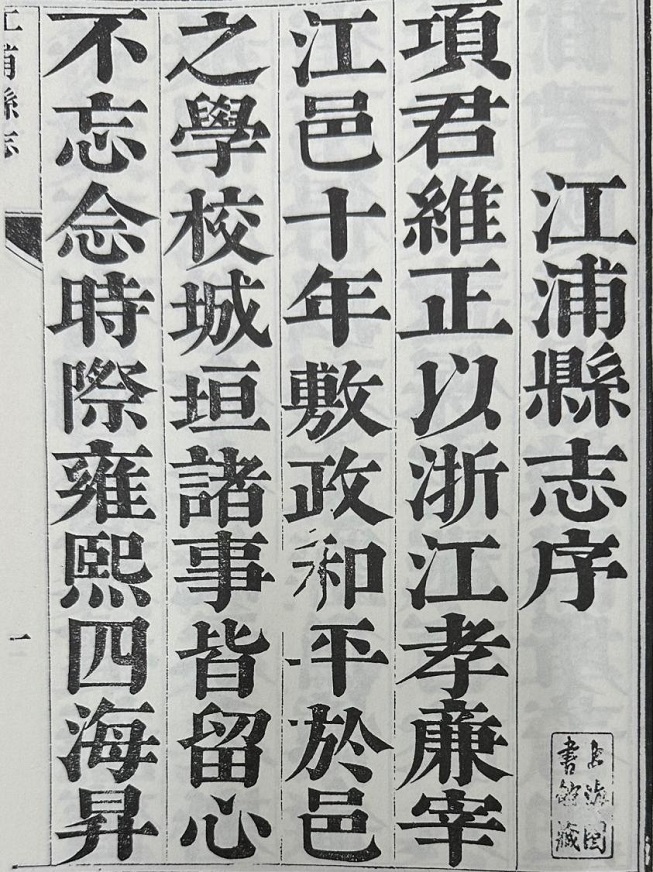 江浦縣志序
項君維正以浙江孝廉宰
江邑十年敷政和平於邑
之學校城垣諸事皆留心
不忘念時際雍熙四海昇
江浦縣志
一
上海圖書館藏